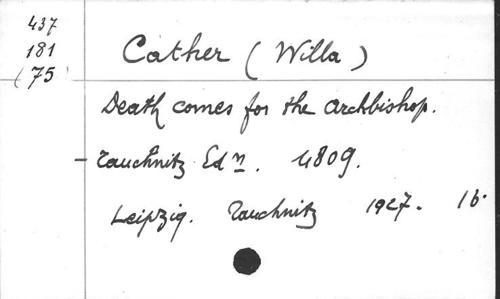 437
181
(75
Cather (Willa)
Death comes for the Archbishop.
– Tauchnitz Edn. 4809.
Leipzig. Tauchnitz 1927. 16.